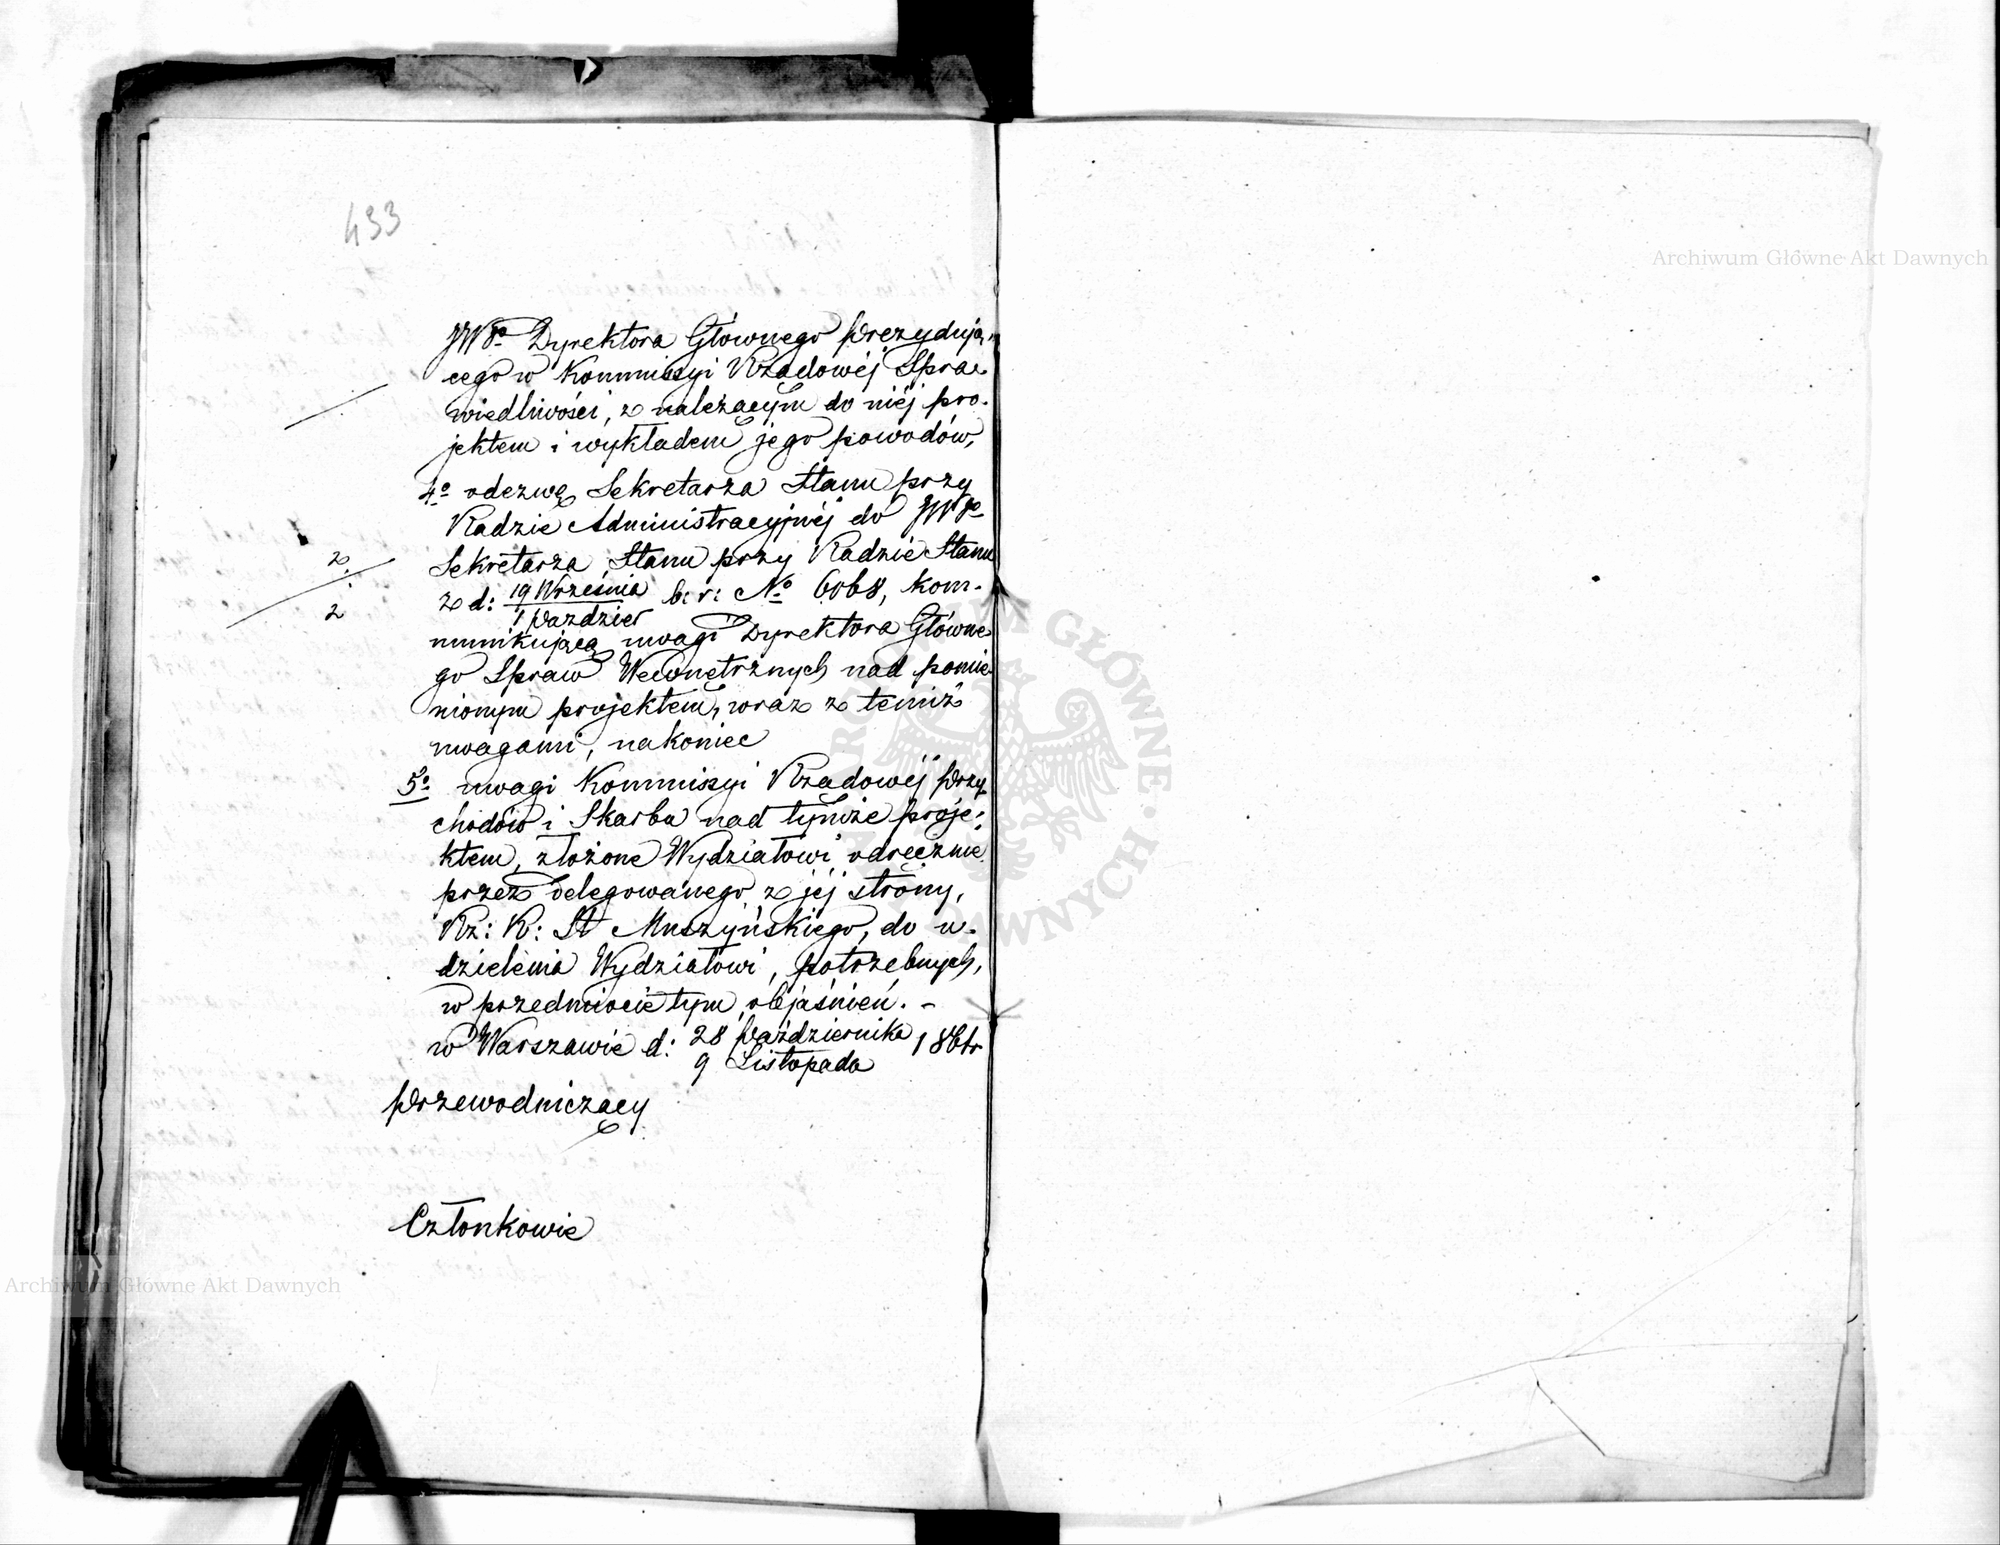 433
JWgo Dyrektora Głównego prezydują,
cego w Kommissyi Rządowéj Spra-
wiedliwości, z należącym do niéj pro-
jektem i wykładem jego powodów,
4o odezwę Sekretarza Stanu przy
Radzie Administracyjnéj do JWgo
Sekretarza Stanu przy Radzie Stanu
z d: 19 Września / 1 Paździer b: r: No 6068, kom-
munikującą uwagi Dyrektora Główne-
go Spraw Wewnętrznych nad pomie-
nionym projektem, wraz z temiż
uwagami, nakoniec
5o uwagi Kommissyi Rządowéj Przy
chodów i Skarbu nad tymże proje-
ktem, złożone Wydziałowi odręcznie
przez delegowanego z jéj strony,
Rz: R: St Muszyńskiego, do u-
dzielenia Wydziałowi, potrzebnych,
w przedmiocie tym, objaśnień. -
w Warszawie d: 28 Października / 9 Listopada 186 r
Przewodniczący
Członkowie
2
2
Archiwum Główne Akt Dawnych
Archiwum Główne Akt Dawnych
ARCHIWUM GŁÓWNE AKT DAWNYCH